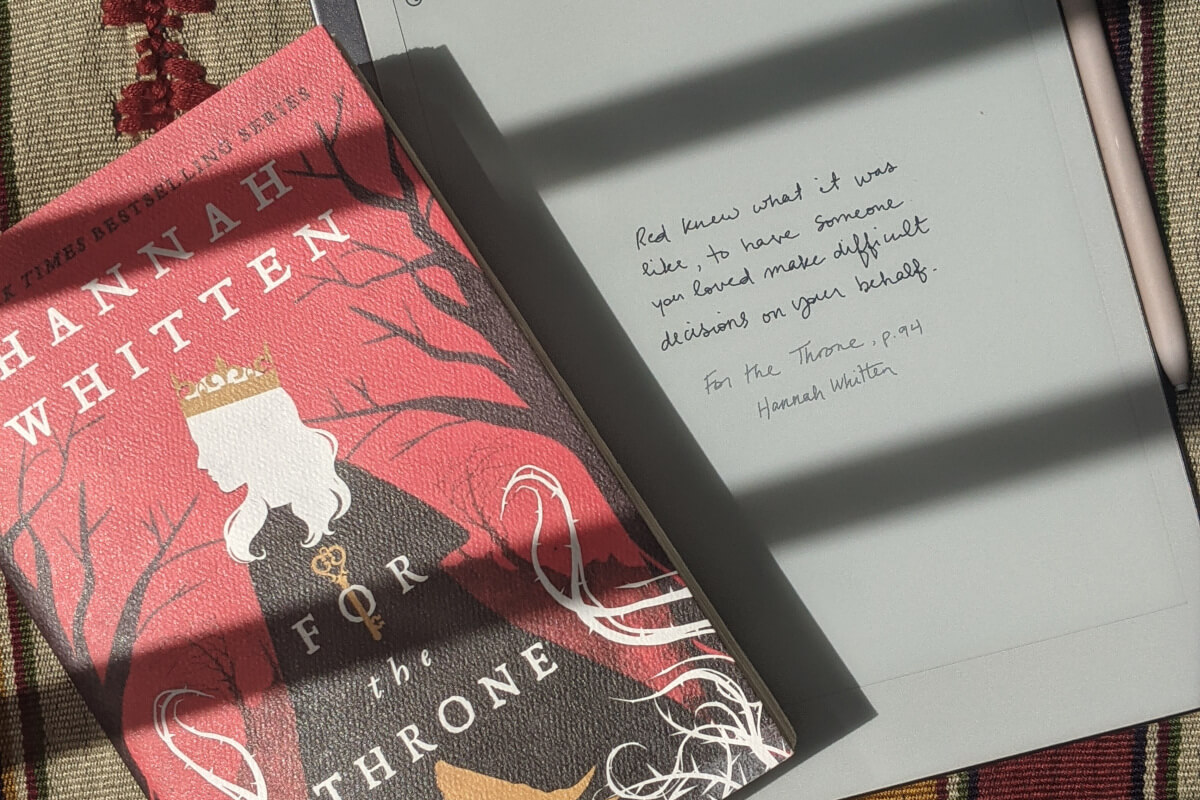 K TIMES BESTSELLING SERIES
HANNAH
WHITTEN
FOR
the
THRONE
Red knew what it was
like, to have someone
you loved make difficult
decisions on your behalf.
For the Throne, p.94
Hannah Whitten